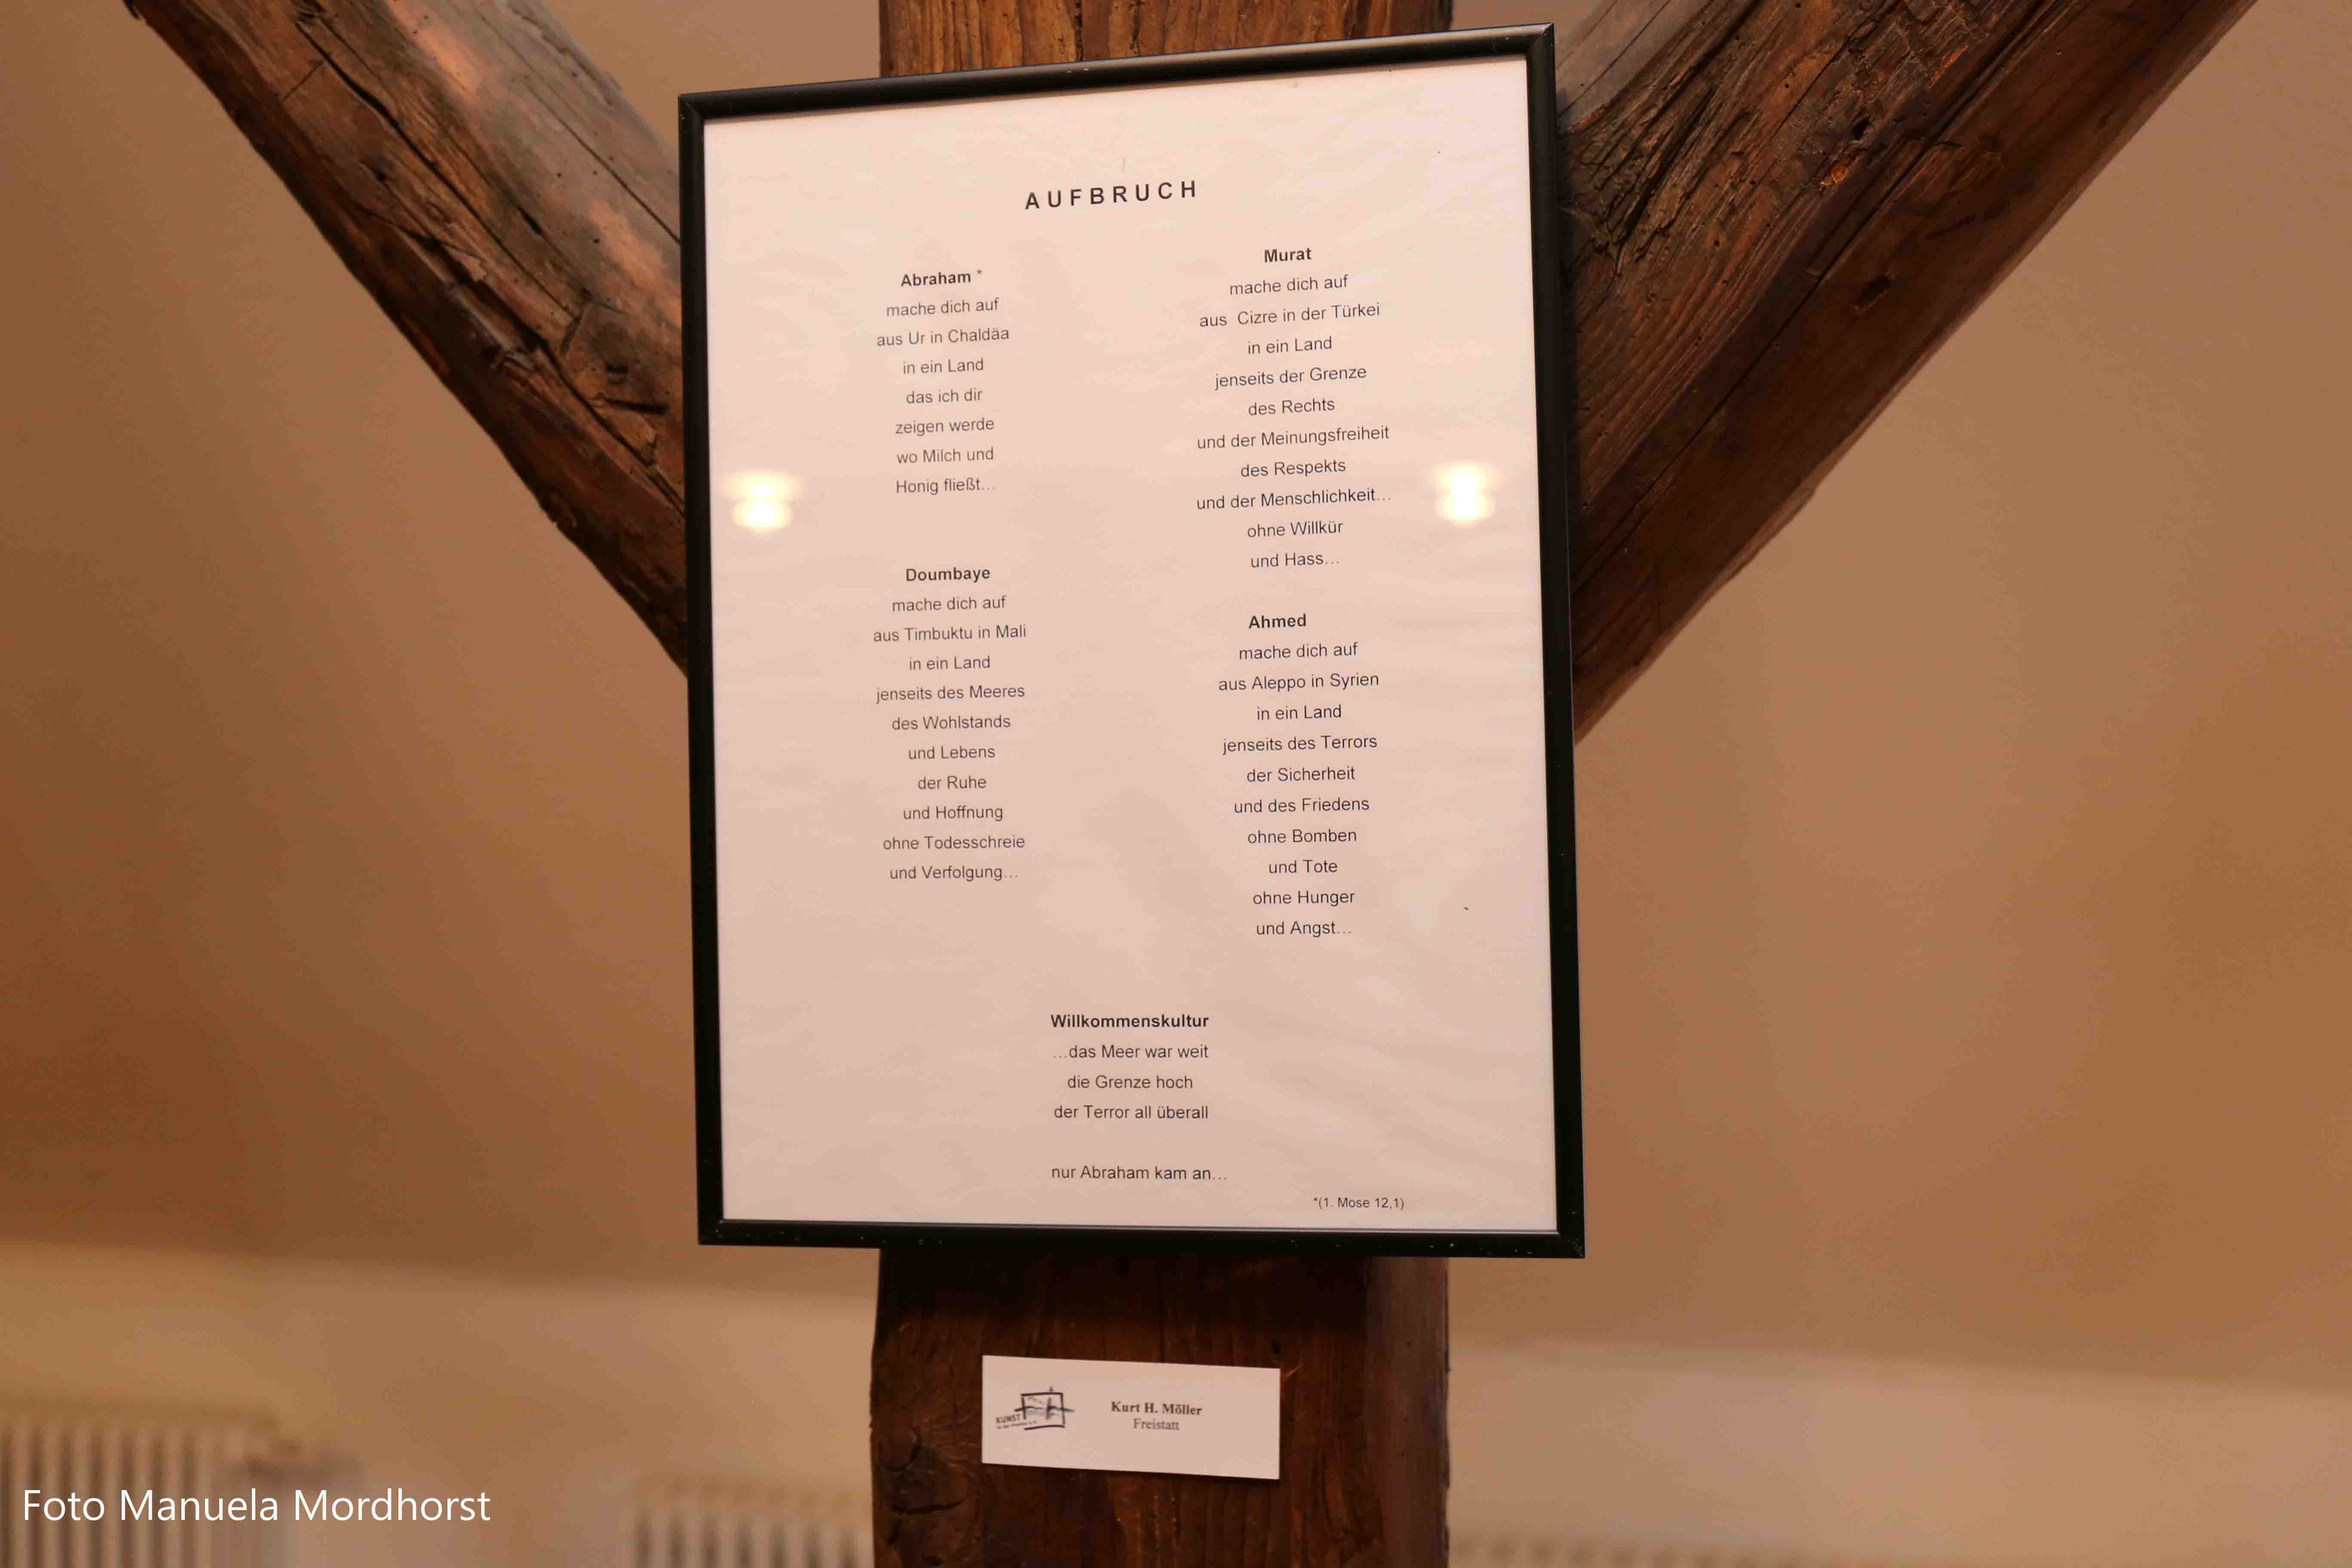 AUFBRUCH
Abraham *
mache dich auf
aus Ur in Chaldäa
in ein Land
das ich dir
zeigen werde
wo Milch und
Honig fließt…
Doumbaye
mache dich auf
aus Timbuktu in Mali
in ein Land
jenseits des Meeres
des Wohlstands
und Lebens
der Ruhe
und Hoffnung
ohne Todesschreie
und Verfolgung…
Murat
mache dich auf
aus Cizre in der Türkei
in ein Land
jenseits der Grenze
des Rechts
und der Meinungsfreiheit
des Respekts
und der Menschlichkeit…
ohne Willkür
und Hass…
Ahmed
mache dich auf
aus Aleppo in Syrien
in ein Land
jenseits des Terrors
der Sicherheit
und des Friedens
ohne Bomben
und Tote
ohne Hunger
und Angst…
Willkommenskultur
…das Meer war weit
die Grenze hoch
der Terror all überall
nur Abraham kam an…
*(1. Mose 12,1)
KUNST
Kurt H. Möller
Freistatt
Foto Manuela Mordhorst